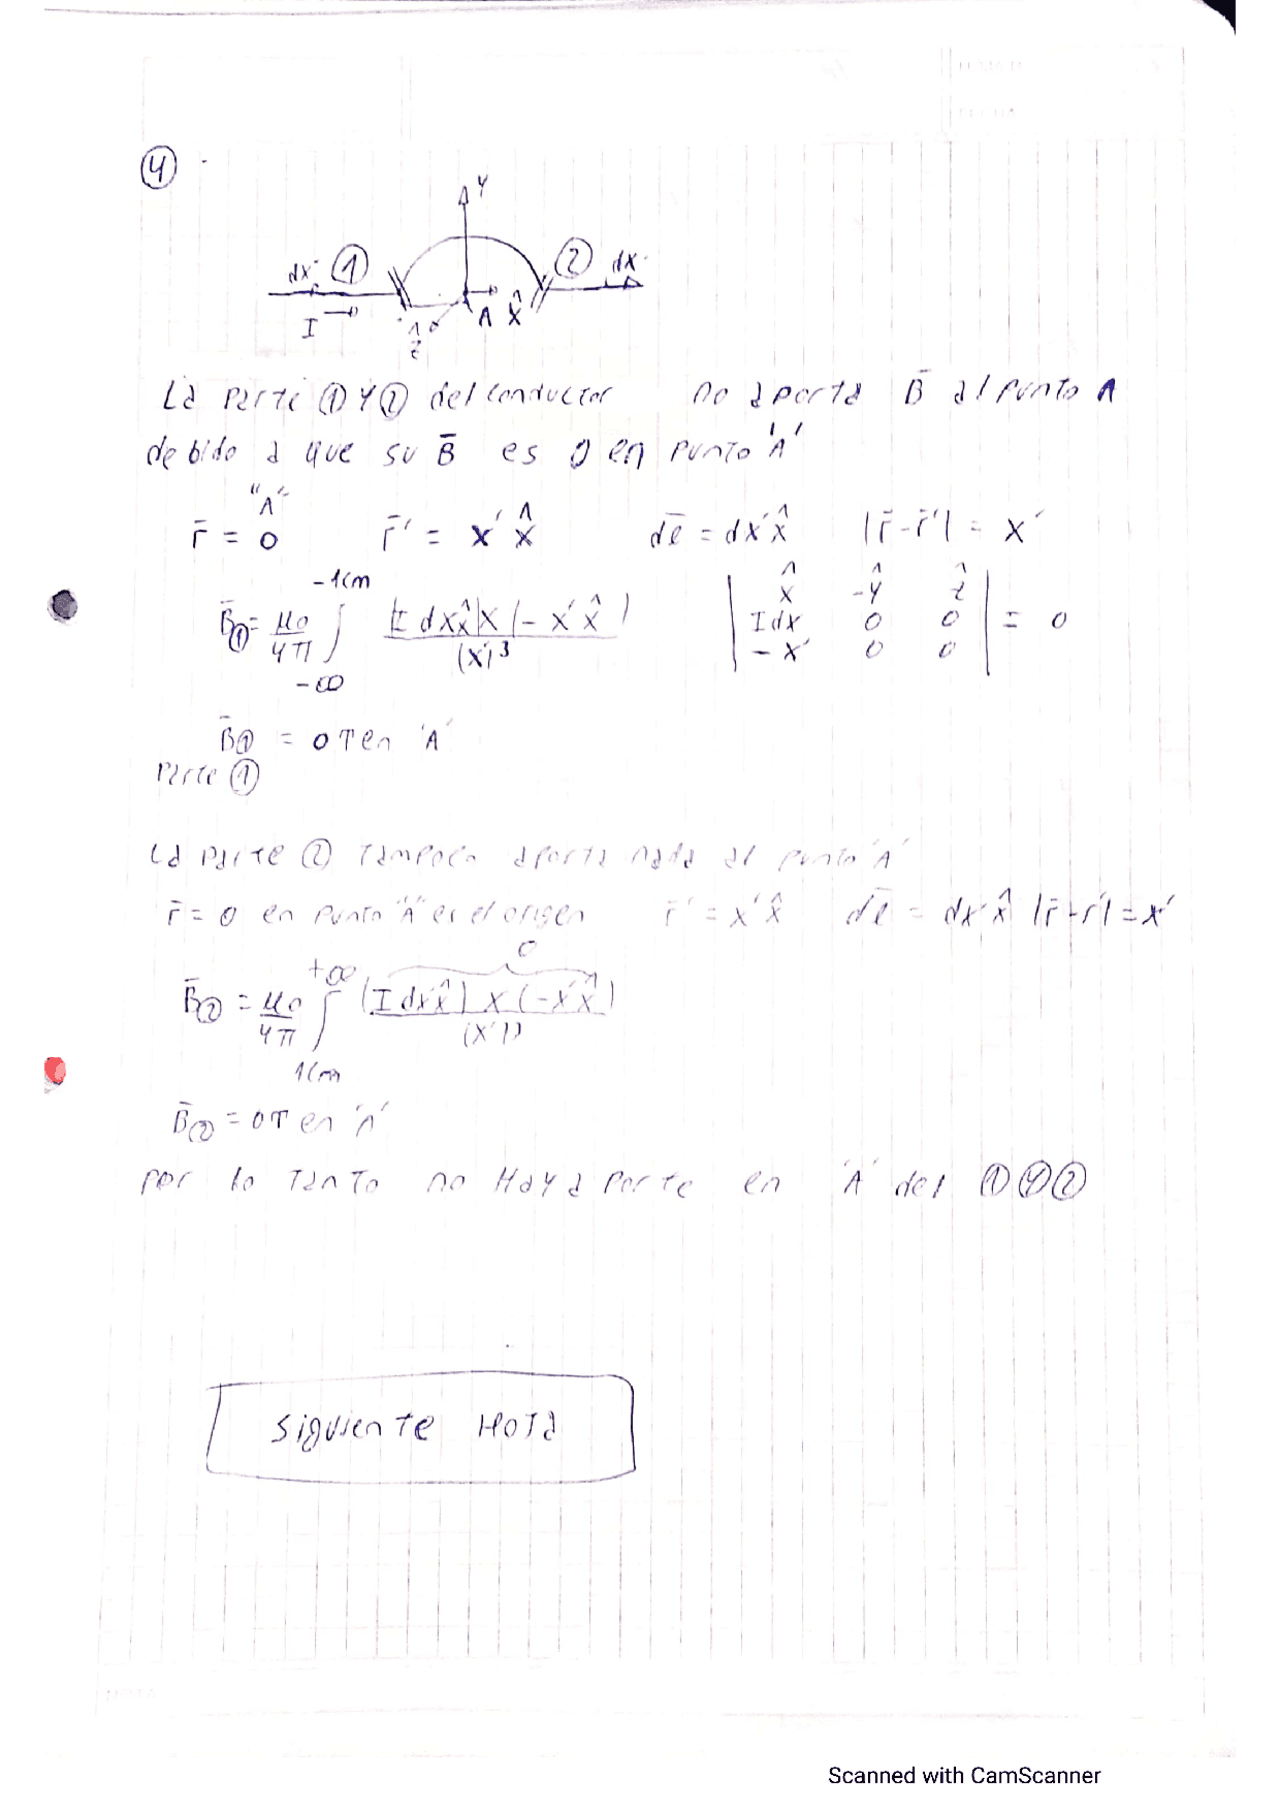 4
Y
dx' 1 2 dx'
I A x̂
ẑ
La parte ① y ② del conductor no aporta B̄ al punto A
debido a que su B̄ es 0 en punto 'A'
"A"
r̄ = 0 r̄' = x' x̂ dl̄ = dx' x̂ |r̄ - r̄'| = x'
B̄① = μ₀/4π ∫_{-∞}^{-1cm} (I dx x̂) x (-x' x̂) / (x')³ | x̂ -ŷ ẑ ; I dx 0 0 ; -x' 0 0 | = 0
B̄① = 0 T en 'A'
Parte ①
La parte ② tampoco aporta nada al punto 'A'
r̄ = 0 en punto "A" es el origen r̄' = x' x̂ dl̄ = dx' x̂ |r̄ - r'| = x'
0
B̄② = μ₀/4π ∫_{1cm}^{+∞} (I dx' x̂) x (-x' x̂) / (x')³
B̄② = 0T en 'A'
por lo tanto no hay aporte en 'A' del ① y ②
Siguiente Hoja
Scanned with CamScanner